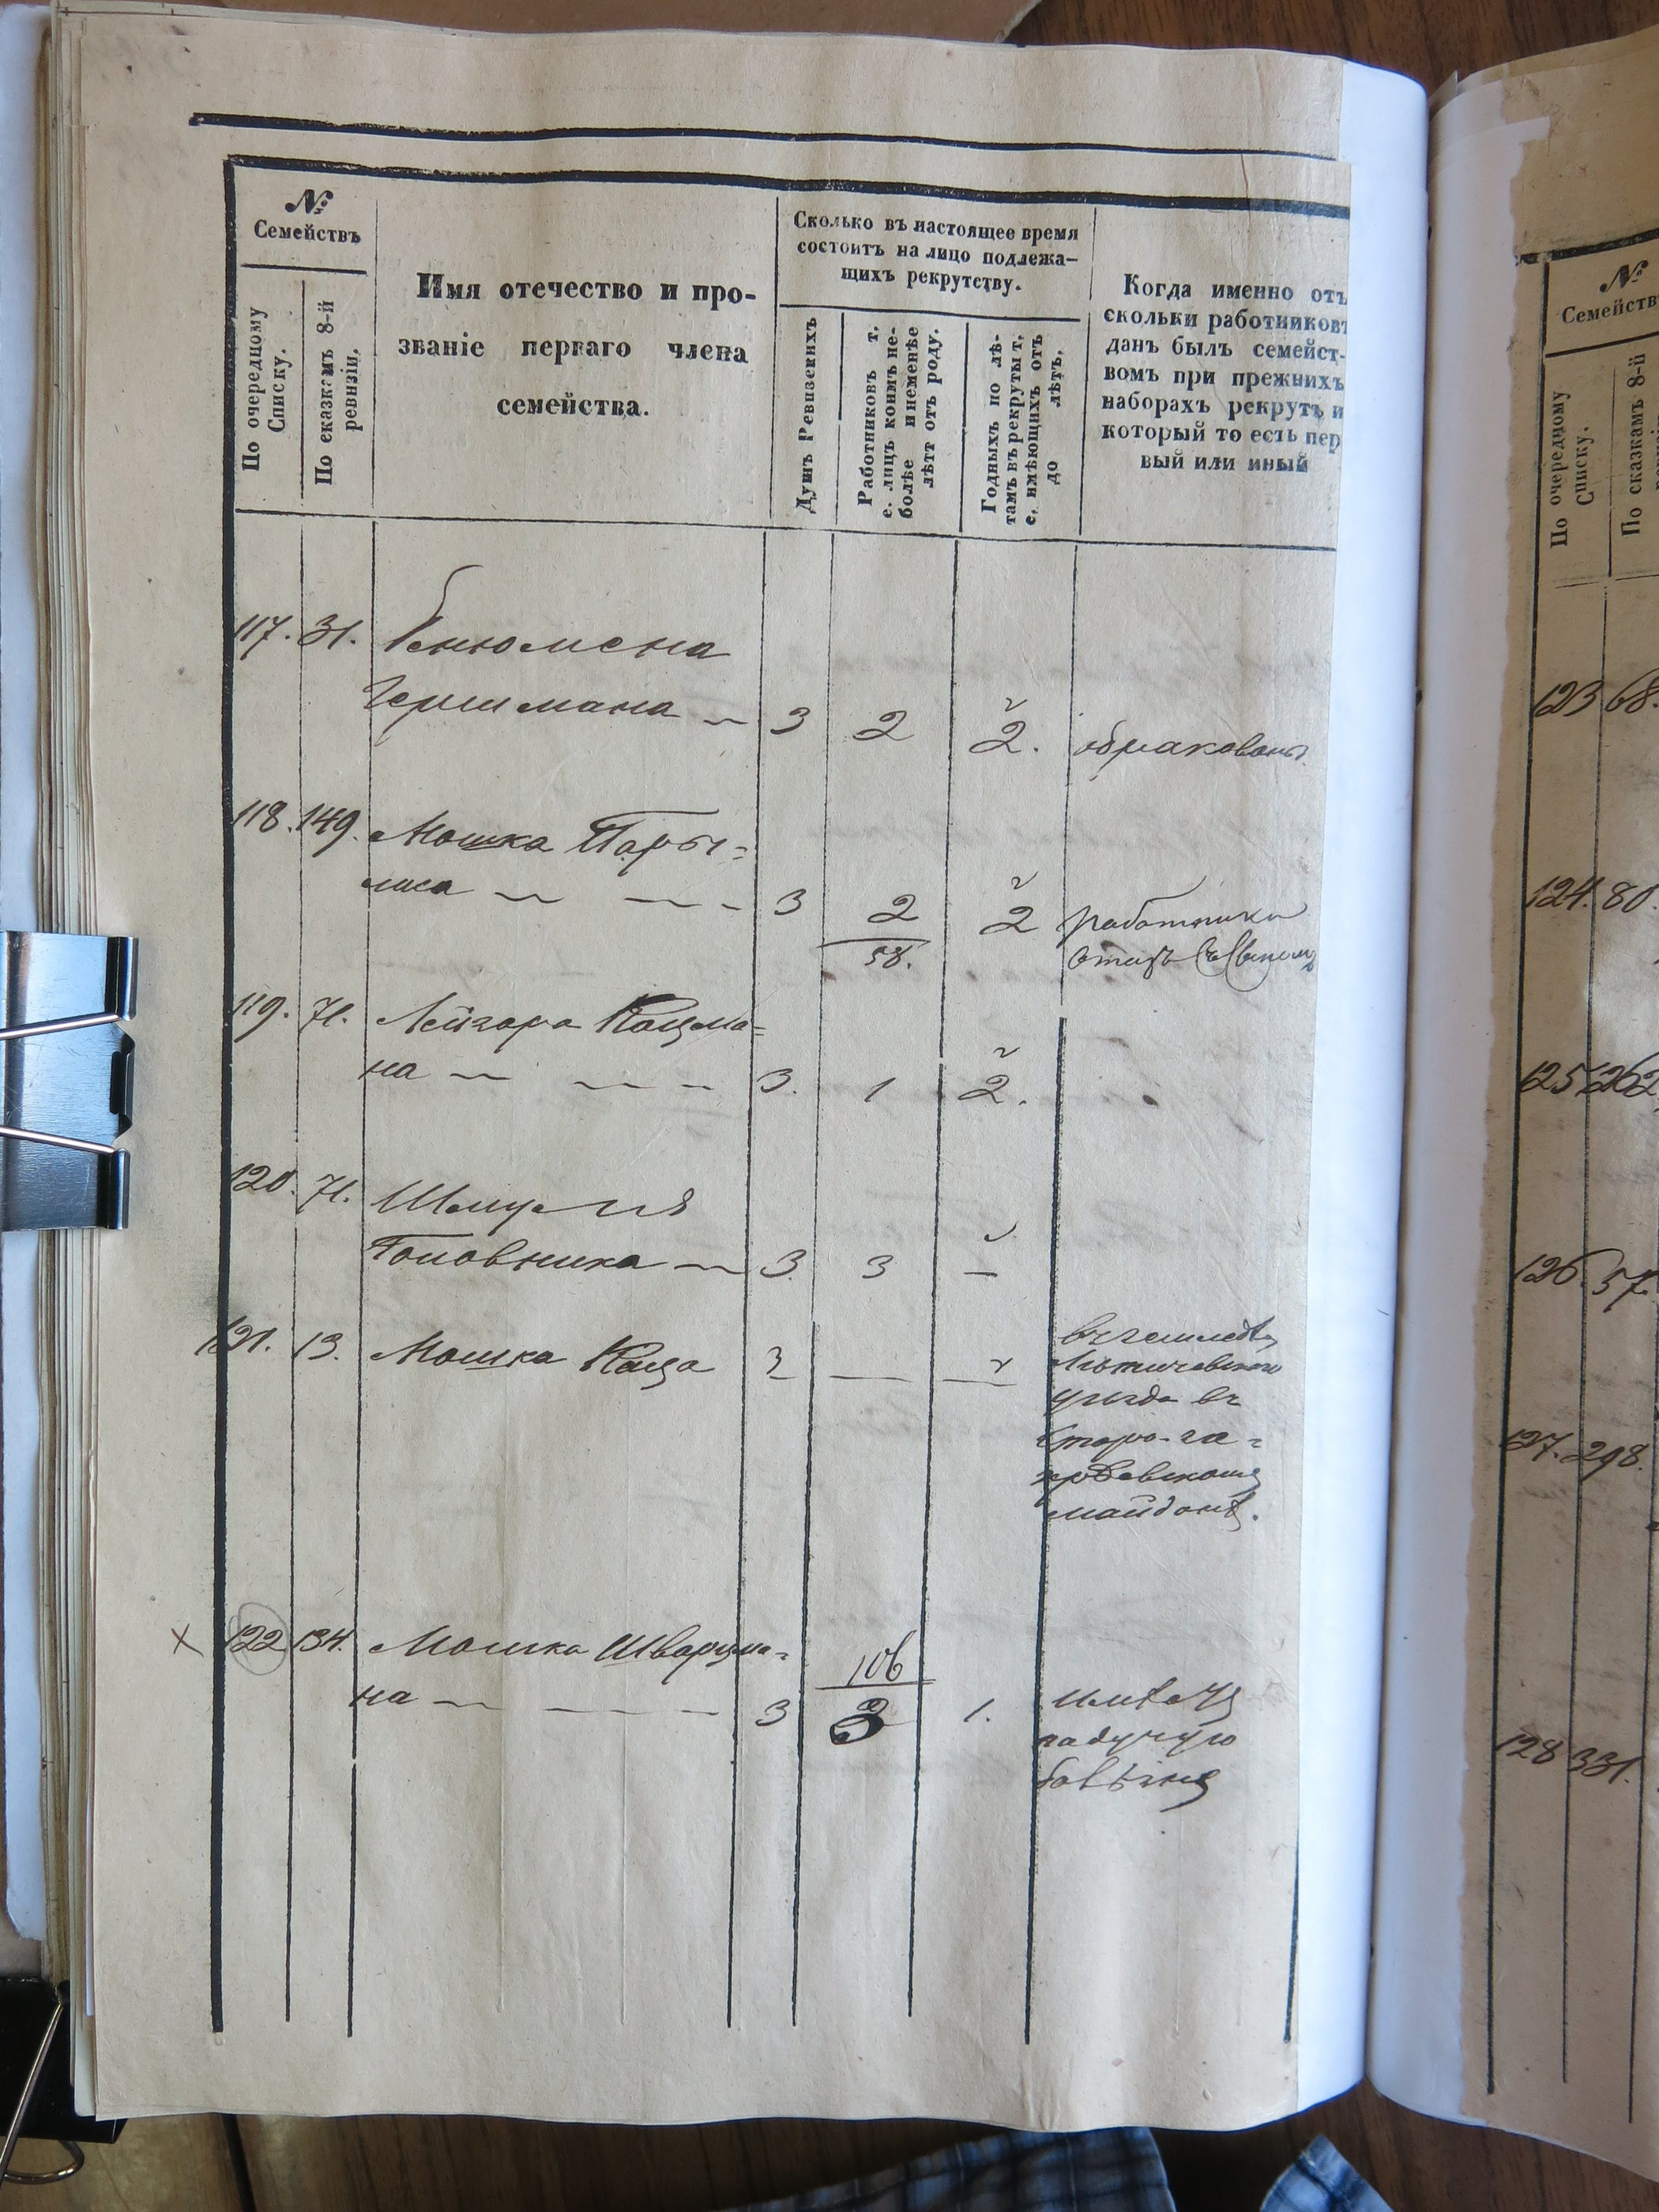 №
Семействъ
По очередному
Списку.
По сказкамъ 8-й
ревизіи.
Имя отечество и про-
званіе перваго члена
семейства.
Сколько въ настоящее время
состоитъ на лицо подлежа-
щихъ рекрутству.
Душъ Ревизскихъ
Работниковъ т.
е. лицъ коимъ не-
болѣе и неменѣе
лѣтъ отъ роду.
Годныхъ по лѣ-
тамъ въ рекруты т.
е. имѣющихъ отъ
до лѣтъ.
Когда именно отъ
скольки работниковъ
данъ былъ семейст-
вомъ при прежнихъ
наборахъ рекрутъ и
который то есть пер
вый или иный
117. 31. Бенюмена
Гершмана 3 2 2. обракованъ
118. 149. Мошка
3 2 2 работника
58.
119. 71. Лейзора Кацма=
на 3. 1 2.
120. 71. Шмуля
Головника 3. 3 —
121. 13. Мошка Каца 3 — —
Летичевского
уезда въ
майданѣ.
х 122 134. Мошка Шварцма=
106
на 3 3 1. имѣетъ
падучую
болѣзнь
№
Семейств
По очередному
Списку.
По сказкамъ 8-й
123 68.
124. 80.
125 262
126. 57.
127. 298.
128 331.